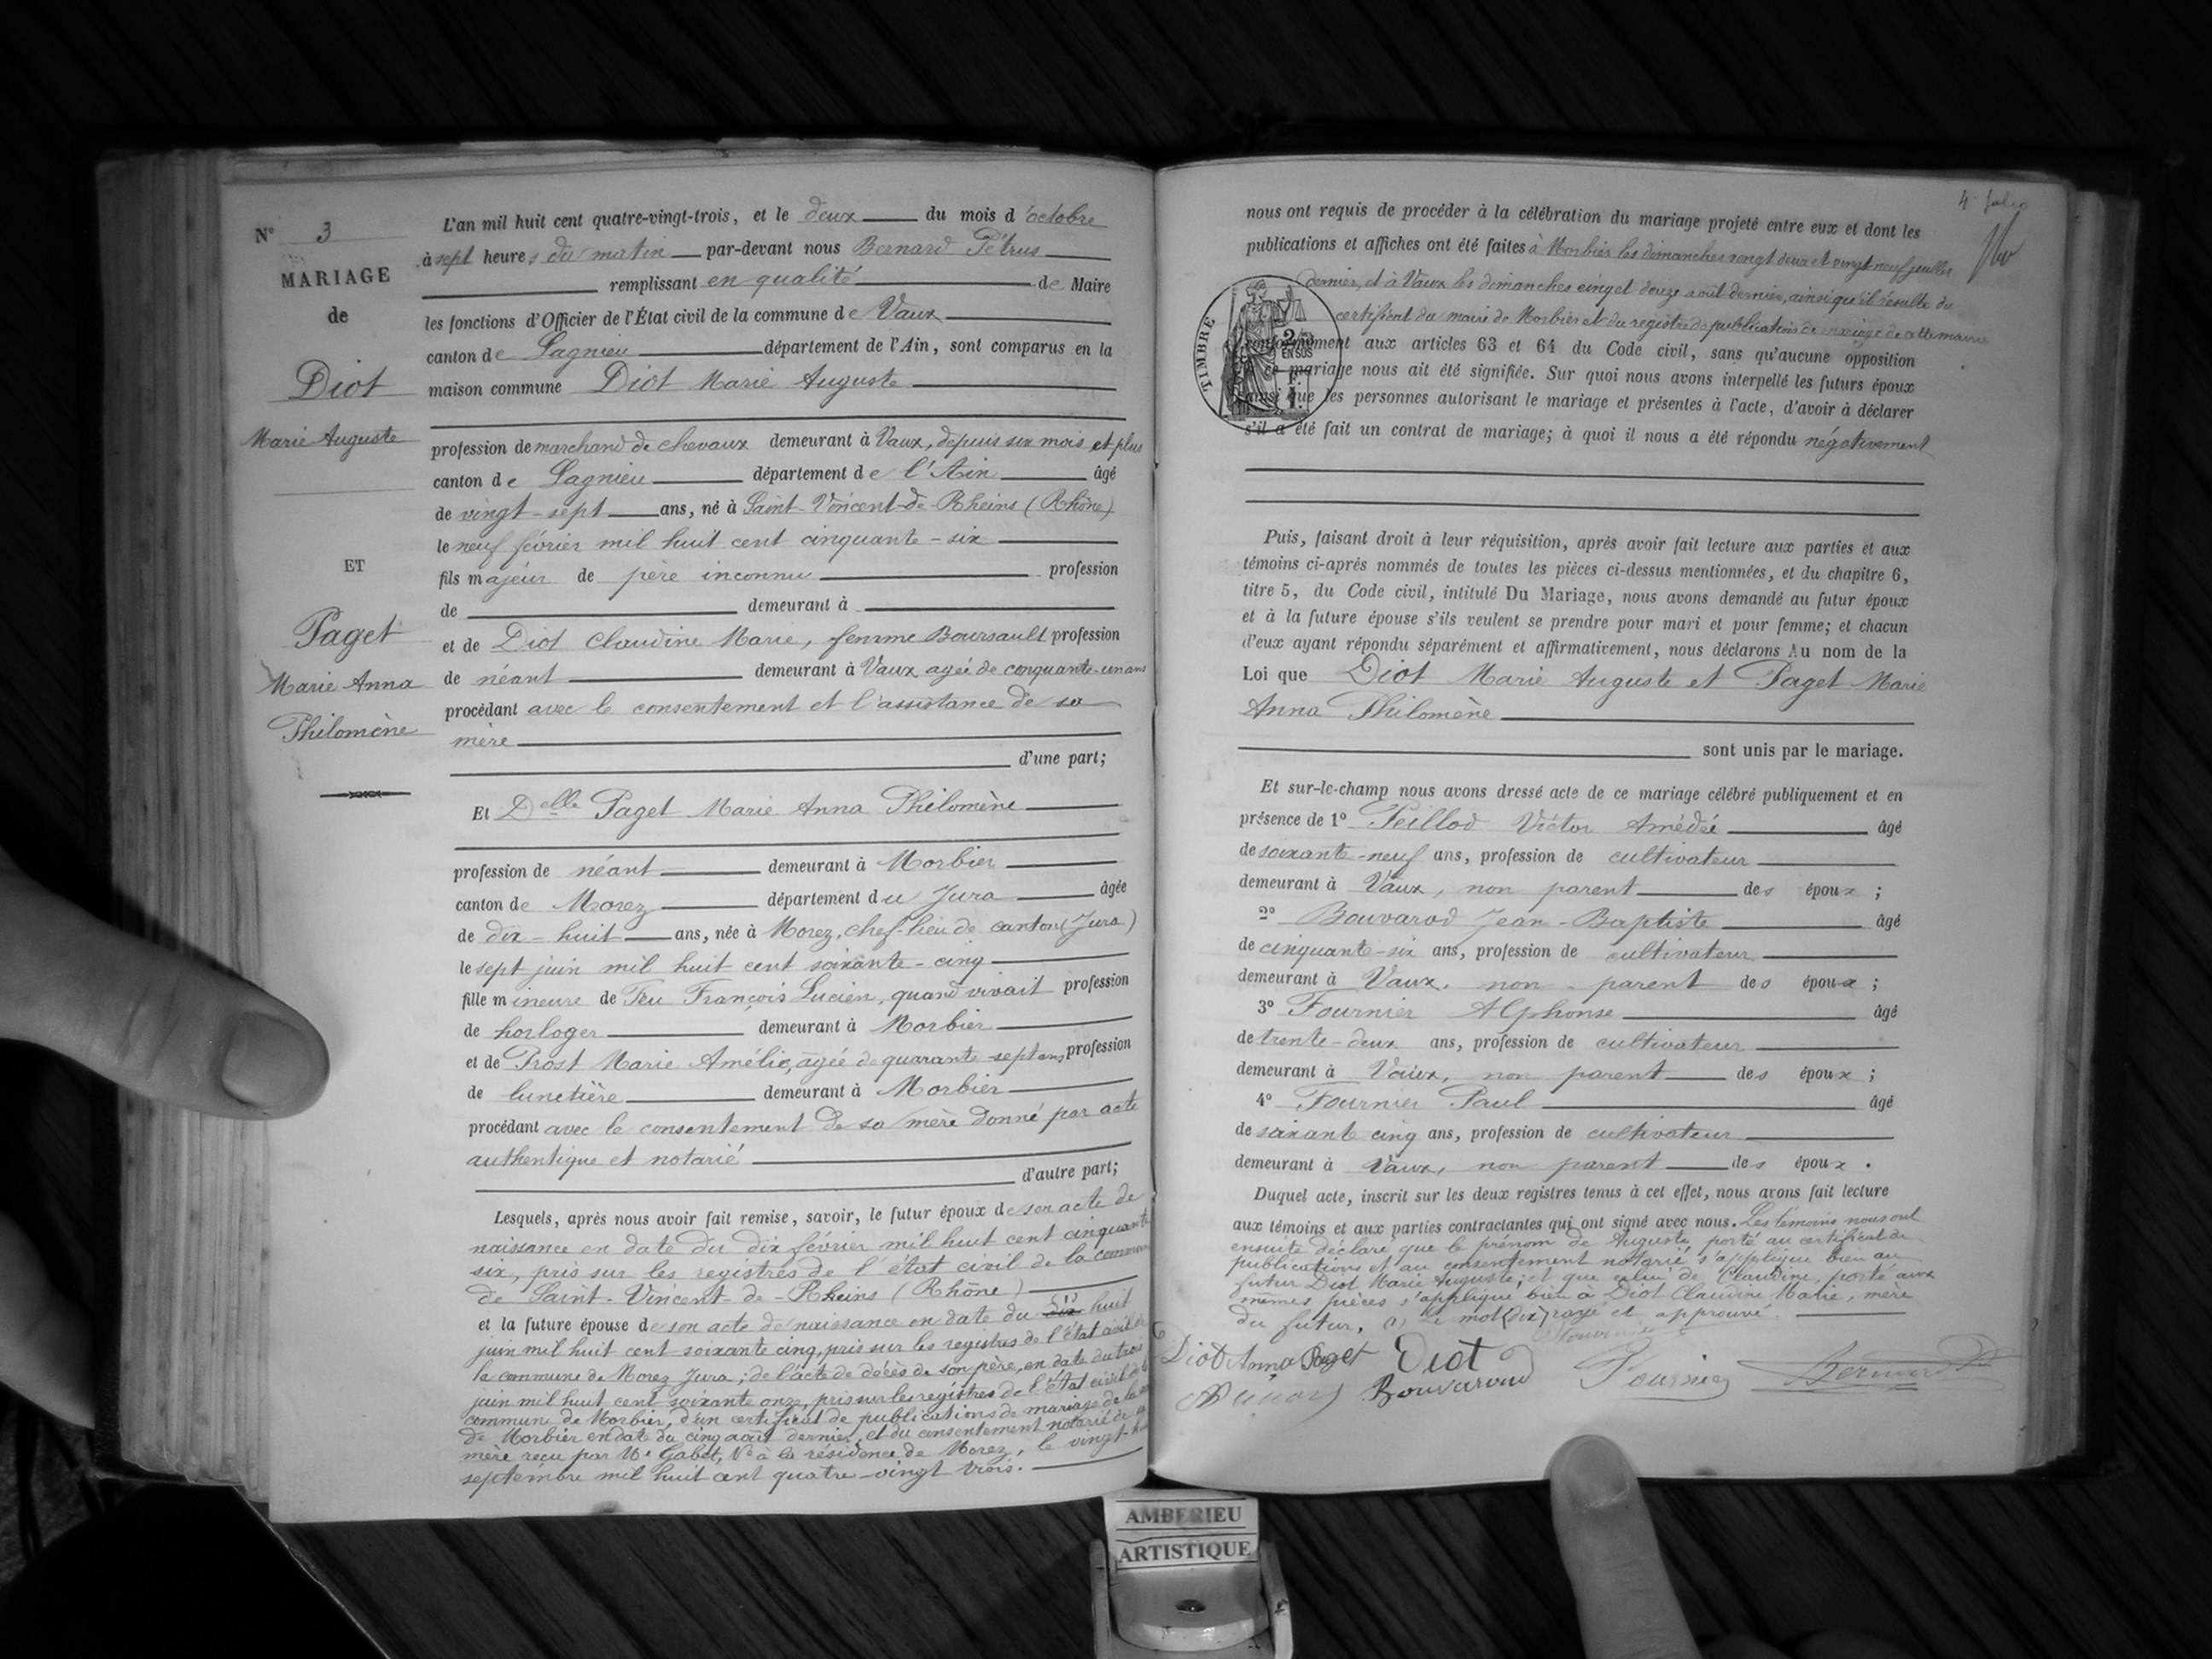 N° 3
MARIAGE
de
Diot
Marie Auguste
ET
Paget
Marie Anna
Philomène
L'an mil huit cent quatre-vingt-trois, et le deux du mois d'octobre
à sept heures du matin par-devant nous Bernard Pétrus
remplissant en qualité de Maire
les fonctions d'Officier de l'État civil de la commune de Vaux
canton de Lagnieu département de l'Ain, sont comparus en la
maison commune Diot Marie Auguste
profession de marchand de chevaux demeurant à Vaux, depuis six mois et plus
canton de Lagnieu département de l'Ain âgé
de vingt-sept ans, né à Saint-Vincent-de-Rheins (Rhône)
le neuf février mil huit cent cinquante-six
fils majeur de père inconnu profession
de demeurant à
et de Diot Claudine Marie, femme Boursault profession
de néant demeurant à Vaux, agée de cinquante-un ans
procédant avec le consentement et l'assistance de sa
mère
d'une part;
Et Delle Paget Marie Anna Philomène
profession de néant demeurant à Morbier
canton de Morez département du Jura âgée
de dix-huit ans, née à Morez, chef-lieu de canton (Jura)
le sept juin mil huit cent soixante-cinq
fille mineure de Feu François Lucien, quand vivait profession
de horloger demeurant à Morbier
et de Prost Marie Amélie, agée de quarante-sept ans, profession
de lunetière demeurant à Morbier
procédant avec le consentement de sa mère donné par acte
authentique et notarié
d'autre part;
Lesquels, après nous avoir fait remise, savoir, le futur époux de son acte de
naissance en date du dix février mil huit cent cinquante
six, pris sur les registres de l'état civil de la commune
de Saint-Vincent-de-Rheins (Rhône)
et la future épouse de son acte de naissance en date du dix (1) huit
juin mil huit cent soixante cinq, pris sur les registres de l'état civil de
la commune de Morez Jura; de l'acte de décès de son père, en date du trois
juin mil huit cent soixante onze, pris sur les registres de l'état civil de la
commune de Morbier, d'un certificat de publications de mariage de la
de Morbier en date du cinq août dernier, et du consentement notarié de
mère reçu par Me Gabet, Ne à la résidence de Morez, le vingt-
septembre mil huit cent quatre-vingt trois.
4e folio
nous ont requis de procéder à la célébration du mariage projeté entre eux et dont les
publications et affiches ont été faites à Morbier les dimanches vingt deux et vingt-neuf juillet
dernier, et à Vaux les dimanches cinq et douze août dernier, ainsi qu'il résulte du
certificat du maire de Morbier et du registre de publication de mariage de cette mairie
conformément aux articles 63 et 64 du Code civil, sans qu'aucune opposition
ce mariage nous ait été signifiée. Sur quoi nous avons interpellé les futurs époux
ainsi que les personnes autorisant le mariage et présentes à l'acte, d'avoir à déclarer
s'il a été fait un contrat de mariage; à quoi il nous a été répondu négativement
TIMBRE
2/10
EN SUS
Puis, faisant droit à leur réquisition, après avoir fait lecture aux parties et aux
témoins ci-après nommés de toutes les pièces ci-dessus mentionnées, et du chapitre 6,
titre 5, du Code civil, intitulé Du Mariage, nous avons demandé au futur époux
et à la future épouse s'ils veulent se prendre pour mari et pour femme; et chacun
d'eux ayant répondu séparément et affirmativement, nous déclarons Au nom de la
Loi que Diot Marie Auguste et Paget Marie
Anna Philomène
sont unis par le mariage.
Et sur-le-champ nous avons dressé acte de ce mariage célébré publiquement et en
présence de 1° Peillod Victor Amédée âgé
de soixante-neuf ans, profession de cultivateur
demeurant à Vaux, non parent des époux;
2° Bouvarod Jean-Baptiste âgé
de cinquante-six ans, profession de cultivateur
demeurant à Vaux, non parent des époux;
3° Fournier Alphonse âgé
de trente-deux ans, profession de cultivateur
demeurant à Vaux, non parent des époux;
4° Fournier Paul âgé
de soixante cinq ans, profession de cultivateur
demeurant à Vaux, non parent des époux.
Duquel acte, inscrit sur les deux registres tenus à cet effet, nous avons fait lecture
aux témoins et aux parties contractantes qui ont signé avec nous. Les témoins nous ont
ensuite déclaré que le prénom de Auguste porté au certificat de
publications et au consentement notarié s'applique bien au
futur Diot Marie Auguste; et que celui de Claudine, porté aux
mêmes pièces s'applique bien à Diot Claudine Marie, mère
du futur. (1) Le mot (dix) rayé et approuvé.
Diot Anna Paget Diot Fournier Bernard
Bouvarod
AMBERIEU
ARTISTIQUE